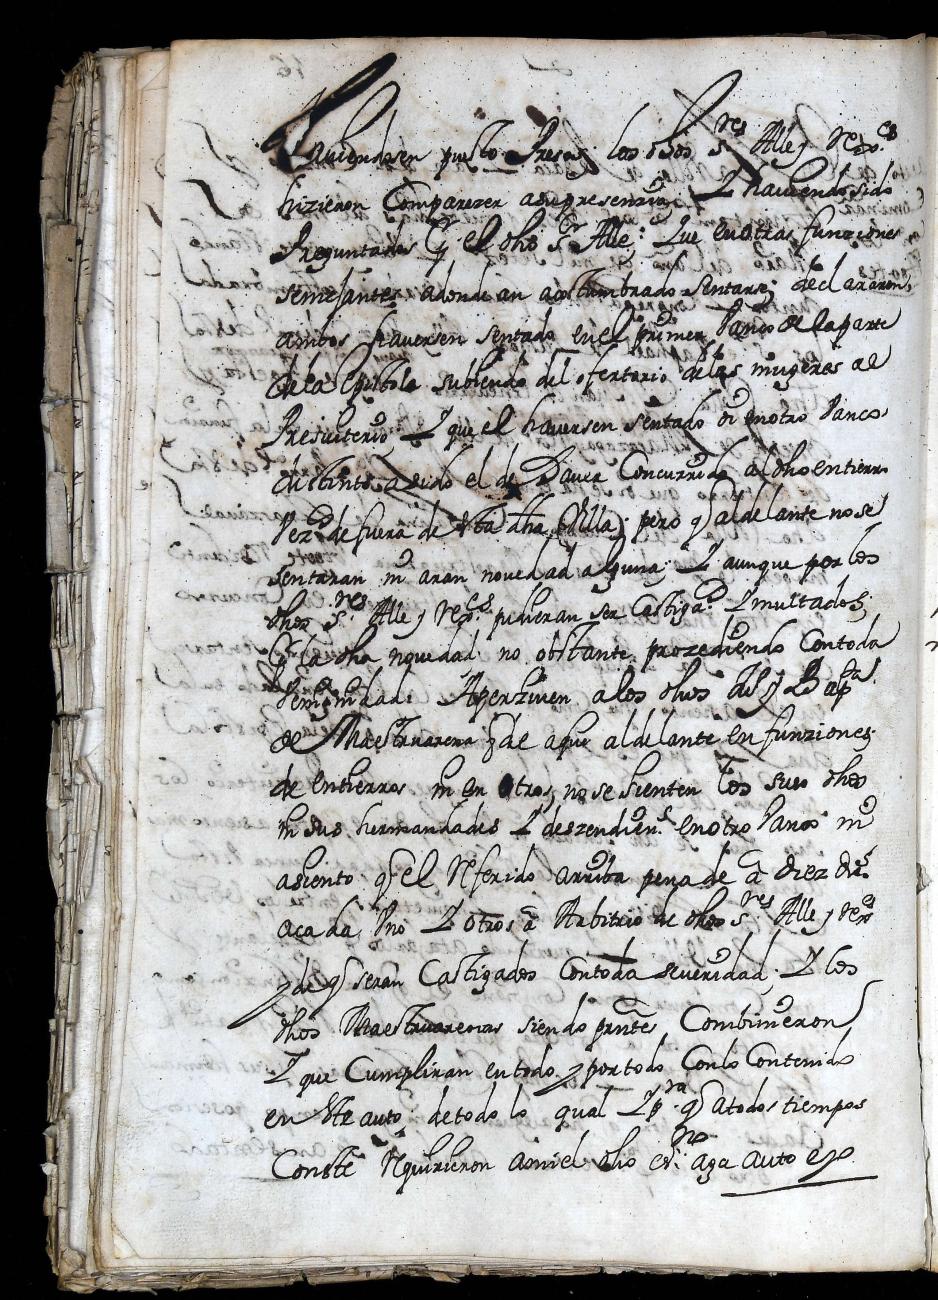 Haviendosen puesto Presos los dhos s.res Alle y Rex.es
hizieron Comparezer asu presenzia, Y haviendo sido
Preguntados P. el dho s.r Alle; Que en otras funziones
semejantes adonde an acostumbrado sentarse; declararon,
ambos haversen sentado en el primer Vanco de la parte
de la Epistola subiendo del ofertorio de las mugeres al
Presviterio Y que el haversen sentado oi en otro Vanco
distinto a sido el de Haver Concurrido al dho entierro
Vez.s de fuera de sta dha Villa; pero q al delante no se
sentaran ni aran novedad alguna; Y aunque por los
dhos s.res Alle y Rex.es pudieran ser Castiga.s Y multados;
P. la dha novedad no obstante, prozediendo Con toda
Venignidad: Aperziven a los dhos
de Maestruarena q de aqui al delante en funziones
de entierros ni en otros, no se sienten los suso dhos
ni sus hermandades Y deszendien.s en otro Vanco ni
asiento q el Referido arriba pena de a diez du.s
a cada Uno Y otros a Arbitrio de dhos s.res Alle y Rex.es
y de q seran Castigados Con toda severidad; Y los
dhos Maestruarenas siendo prntes Combinieron
Y que Cumpliran en todo y por todo Con lo Contenido
en ste auto; de todo lo qual Y p.ra q a todos tiempos
Conste Requirieron a mi el dho es.no aga auto